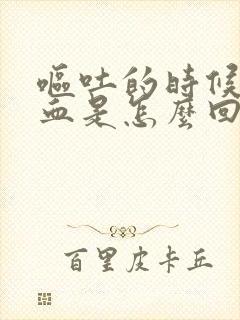 嘔吐的時候
血是怎麼回
百里皮卡丘